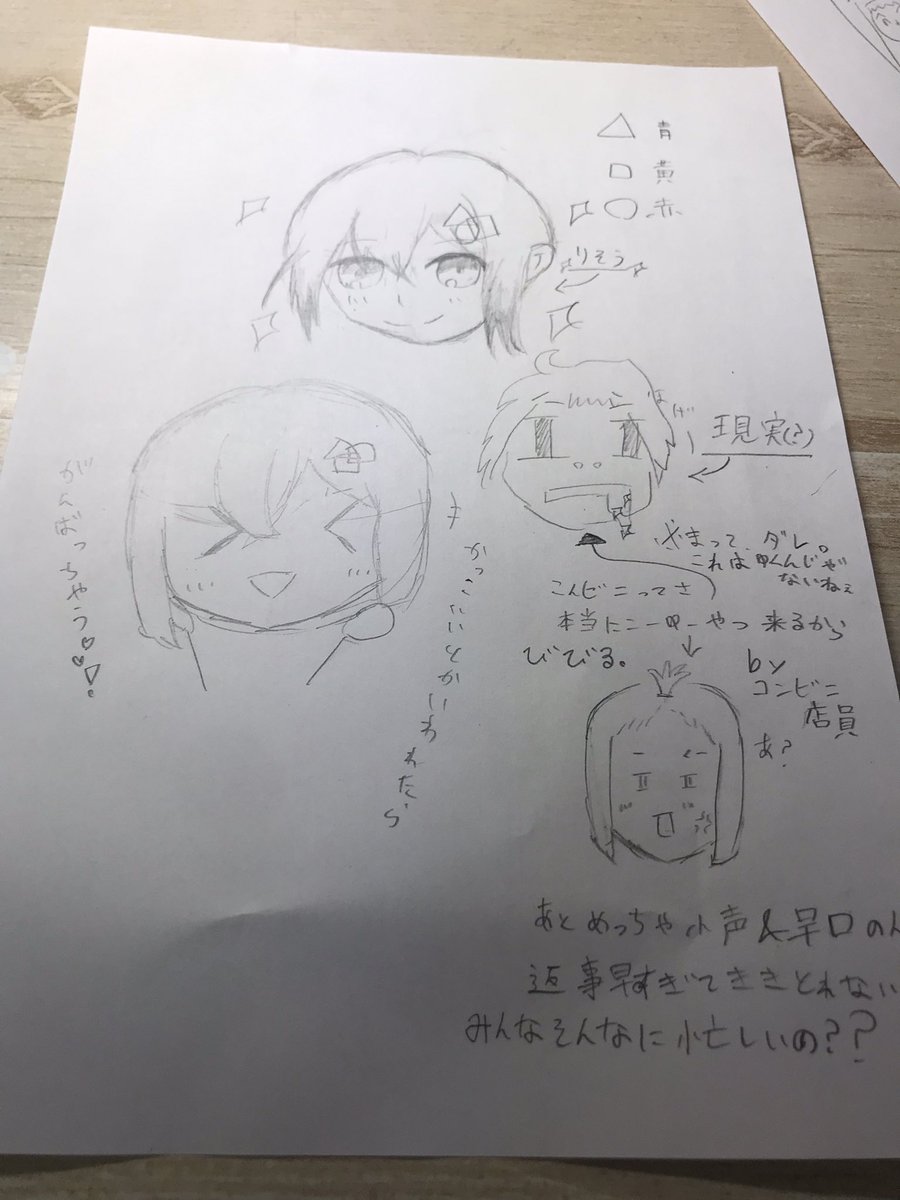 青
黄
赤
りそう
はげ
現実(?)
がんばっちゃう♡♡!
かっこいいとかいわれたら
まって、ダレ。
これは甲くんじゃ
ないねぇ
こんビニってさ
本当にこーゆーやつ来るから
びびる。
by
コンビニ
店員
あ?
あとめっちゃ小声&早口の人
返事早すぎてききとれない
みんなそんなに忙しいの??